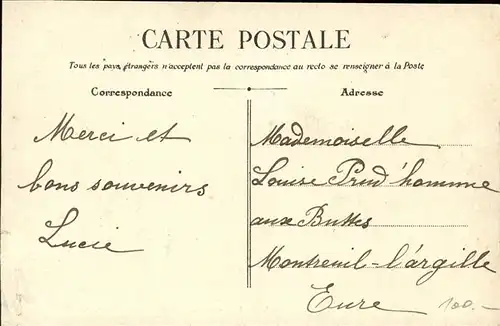 CARTE POSTALE
Tous les pays étrangers n'acceptent pas la correspondance au recto se renseigner à la Poste
Correspondance
Adresse
Merci et
bons souvenirs
Lucie
Mademoiselle
Louise Prud'homme
aux Buttes
Montreuil-l'argille
Eure
100-